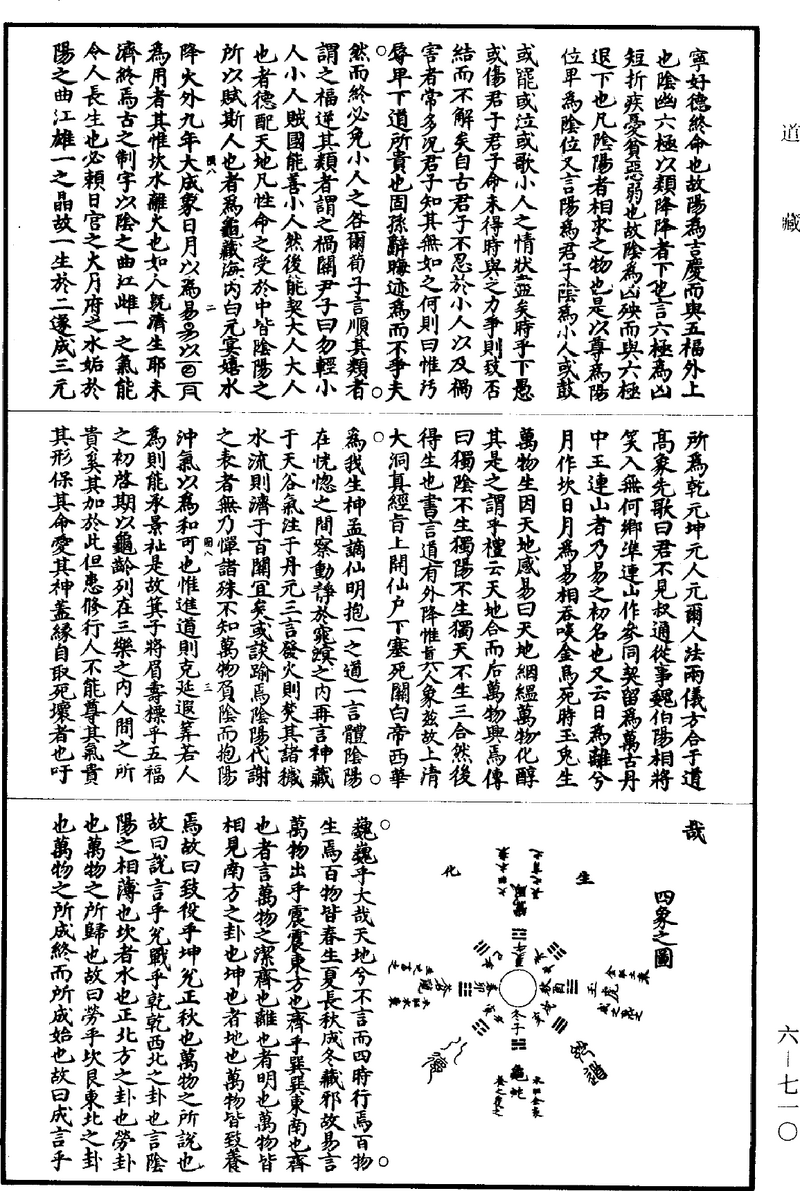 道藏
寧好德終命也故陽為言慶而與五福外上
也陰幽六極以類降降者下也言六極為凶
短折疾憂貧惡弱也故陰為凶殃而與六極
退下也凡陰陽者相求之物也是以尊為陽
位卑為陰位又言陽為君子陰為小人或鼓
或罷或泣或歌小人之情狀盡矣時乎下愚
或傷君子君子命未得時與之力爭則致否
結而不解矣自古君子不忍於小人以及禍
害者常多況君子知其無如之何則曰惟污
辱卑下道所貴也固孫辭晦迹為而不爭夫
然而終必免小人之咎爾荀子言順其類者
謂之福逆其類者謂之禍關尹子曰勿輕小
人小人賊國能善小人然後能契大人大人
也者德配天地凡性命之受於中皆陰陽之
所以賦斯人也者為龜藏海內白元冥嬉水
降火外九年大成象日月以為易易以
為用者其惟坎水離火也如人既濟生耶未
濟終焉古之制字以陰之曲江雌一之氣能
令人長生也必賴日宮之火月府之水姤於
陽之曲江雄一之晶故一生於二遂成三元
所為乾元坤元人元爾人法兩儀方合于道
高象先歌曰君不見叔通從事魏伯陽相將
笑入無何鄉準連山作參同契留為萬古丹
中王連山者乃易之初名也又云日為離兮
月作坎日月為易相吞啖金烏死時玉兔生
萬物生因天地感易曰天地絪縕萬物化醇
其是之謂乎禮云天地合而后萬物興焉傳
曰獨陰不生獨陽不生獨天不生三合然後
得生也書言道有外降惟人象茲故上清
大洞真經旨上開仙戶下塞死關白帝西華
為我生神孟謫仙明抱一之道一言體陰陽
在恍惚之間察動靜於窈溟之内再言神藏
于天谷氣注于丹元三言發火則焚其諸穢
水流則濟于百關宜矣或談踰焉陰陽代謝
之表者無乃憚諸殊不知萬物負陰而抱陽
沖氣以為和可也惟進道則克延遐筭若人
為則能承景祉是故箕子將眉壽操乎五福
之初啓期以龜齡列在三樂之內人間之所
貴奚其加於此但患修行人不能尊其氣貴
其形保其命愛其神蓋緣自取死壞者也吁
哉
四象之圖
生
化
巍巍乎大哉天地兮不言而四時行焉百物
生焉百物皆春生夏長秋成冬藏邪故易言
萬物出乎震震東方也齊乎巽巽東南也齊
也者言萬物之潔齊也離也者明也萬物皆
相見南方之卦也坤也者地也萬物皆致養
焉故曰致役乎坤兌正秋也萬物之所說也
故曰說言乎兌戰乎乾乾西北之卦也言陰
陽之相薄也坎者水也正北方之卦也勞卦
也萬物之所歸也故曰勞乎坎艮東北之卦
也萬物之所成終而所成始也故曰成言乎
六—七一〇